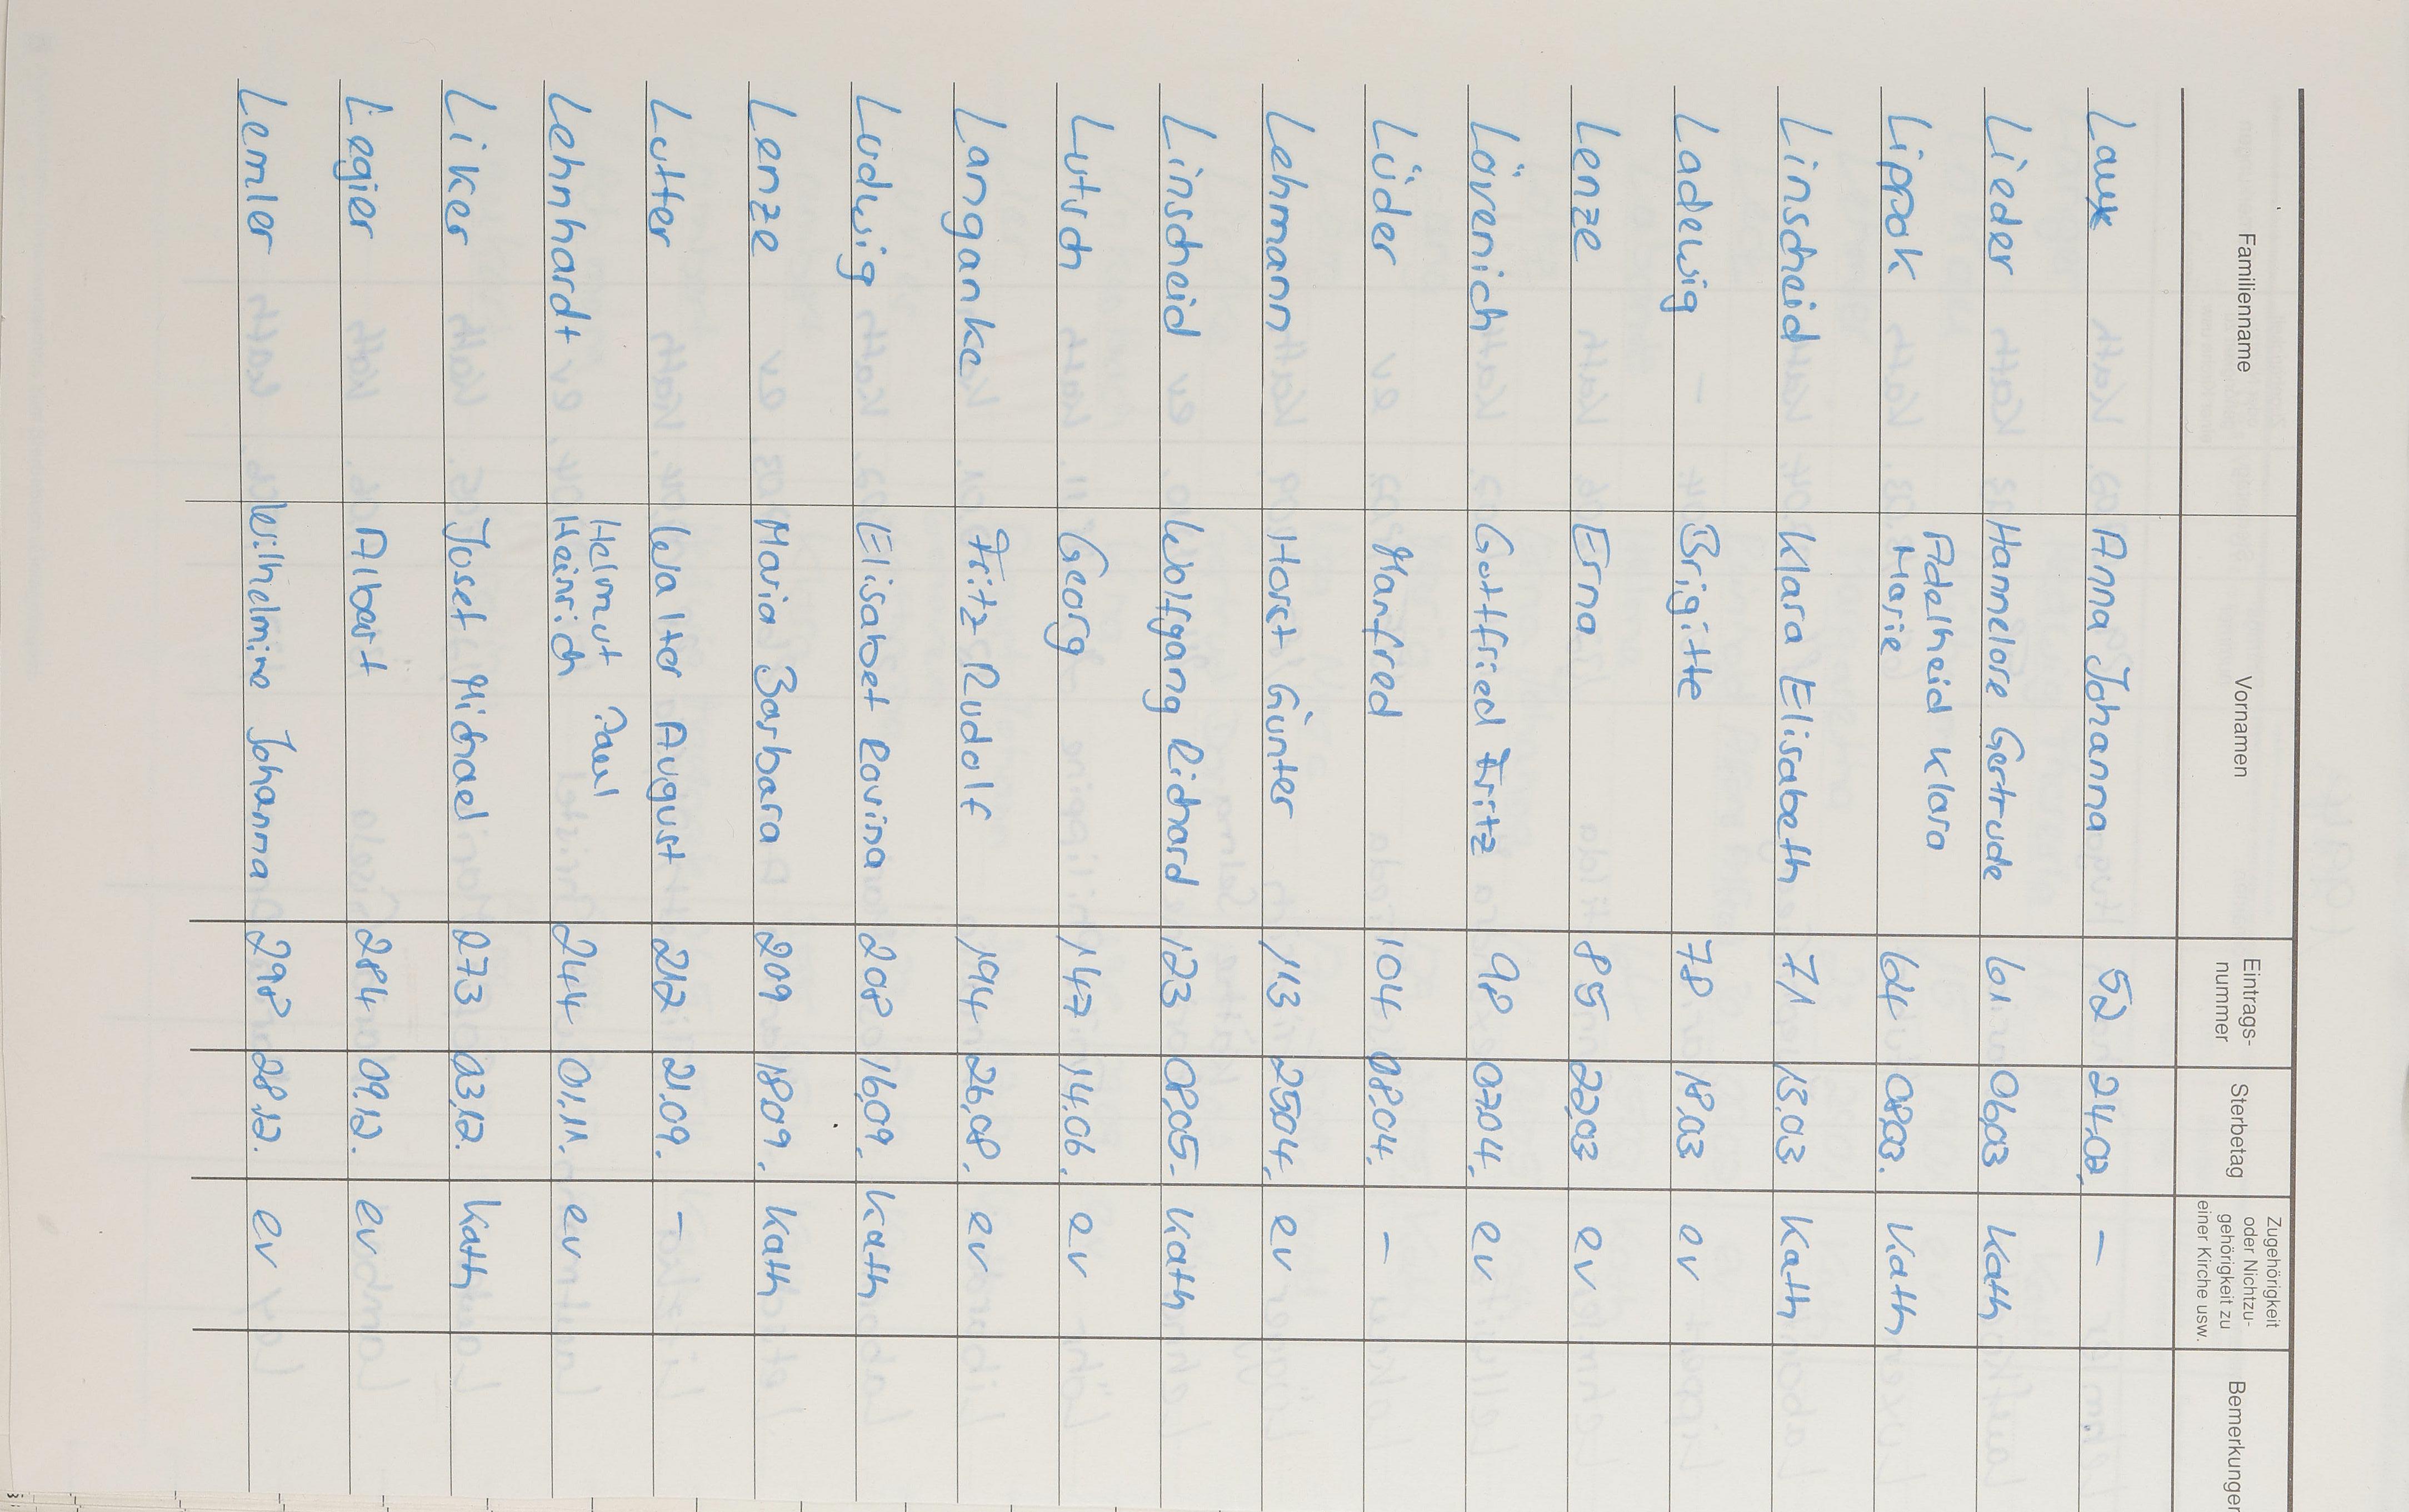 Familienname Vornamen Eintrags-nummer Sterbetag Zugehörigkeit oder Nichtzu-gehörigkeit zu einer Kirche usw. Bemerkungen
Laux Anna Johanna 52 24.02. –
Lieder Hannelore Gertrude 61 06.03 Kath
Lippok Adelheid Klara Marie 64 08.03. Kath
Linscheid Klara Elisabeth 71 15.03 Kath
Ladewig Brigitte 78 18.03 ev
Lenze Erna 85 22.03 ev
Lövenich Gottfried Fritz 98 07.04. ev
Lüder Manfred 104 08.04. –
Lehmann Horst Günter 113 25.04. ev
Linscheid Wolfgang Richard 123 08.05. Kath
Lutsch Georg 147 14.06. ev
Langanke Fritz Rudolf 194 26.08. ev
Ludwig Elisabet Rovina 208 16.09. Kath
Lenze Maria Barbara 209 18.09. Kath
Lutter Walter August 212 21.09. –
Lehnhardt Helmut Paul Heinrich 244 01.11. ev
Liker Josef Michael 273 03.12. Kath
Legier Albert 284 09.12. ev
Lemler Wilhelmine Johanna 298 28.12. ev